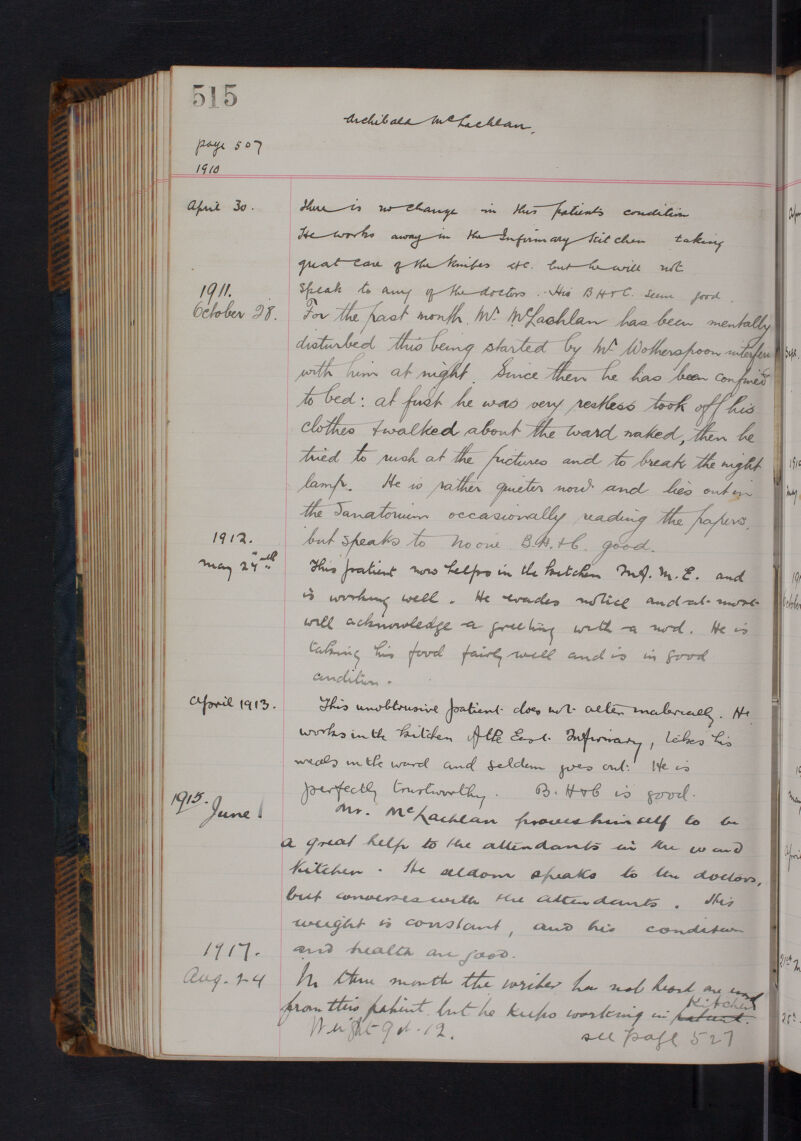 515
Archibald McLachlan.
page 507
1910
April 30. There is no change in this patients condition
He works away in the Infirmary Kitchen taking
great care of the knifes etc. but he will not
speak to any of the doctors. His B H & C. seem good.
1911.
October 28. For the past month, Mr McLachlan has been mentally
disturbed this being started by Mr Wotherspoon
with him at night. Since then he has been confined
to bed: at first he was very restless took off his
clothes & walked about the ward naked, then he
tried to rush at the pictures and to break the night
lamp. He is rather quieter now and lies out in
the Sanatorium occasionally reading the papers.
but speaks to no one B.H.& C. good.
1912.
May 24th This patient now helps in the kitchen M. E. and
is working well. He evades notice and at most
will acknowledge a greeting with a nod. He is
taking his food fairly well and is in good
condition.
April 1913. This unobtrusive patient does not alter materially. He
works in the kitchen of the East Infirmary, takes his
meals in the ward and seldom goes out. He is
perfectly trustworthy. B. H & C is good.
1915.
June 1 Mr. McLachlan proves himself to be
a great help to the attendants in the ward
kitchen. He seldom speaks to the doctors,
but converses with the attendants. His
weight is constant, and his condition
and health are good.
1917.
Aug. 24 In three months the writer has not heard one word
from this patient but he keeps working in patient. Kitchen
Weight 9 st. 12.
see page 527